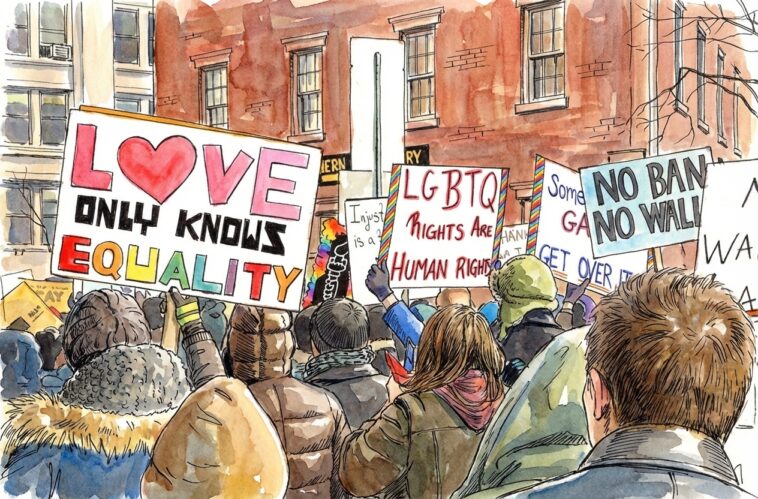 LOVE
ONLY KNOWS
EQUALITY
HERN
RY
Injust
is a
LGBTQ
RIGHTS ARE
HUMAN RIGHTS
Some
GA
GET OVER IT
NO BAN
NO WALL
WA